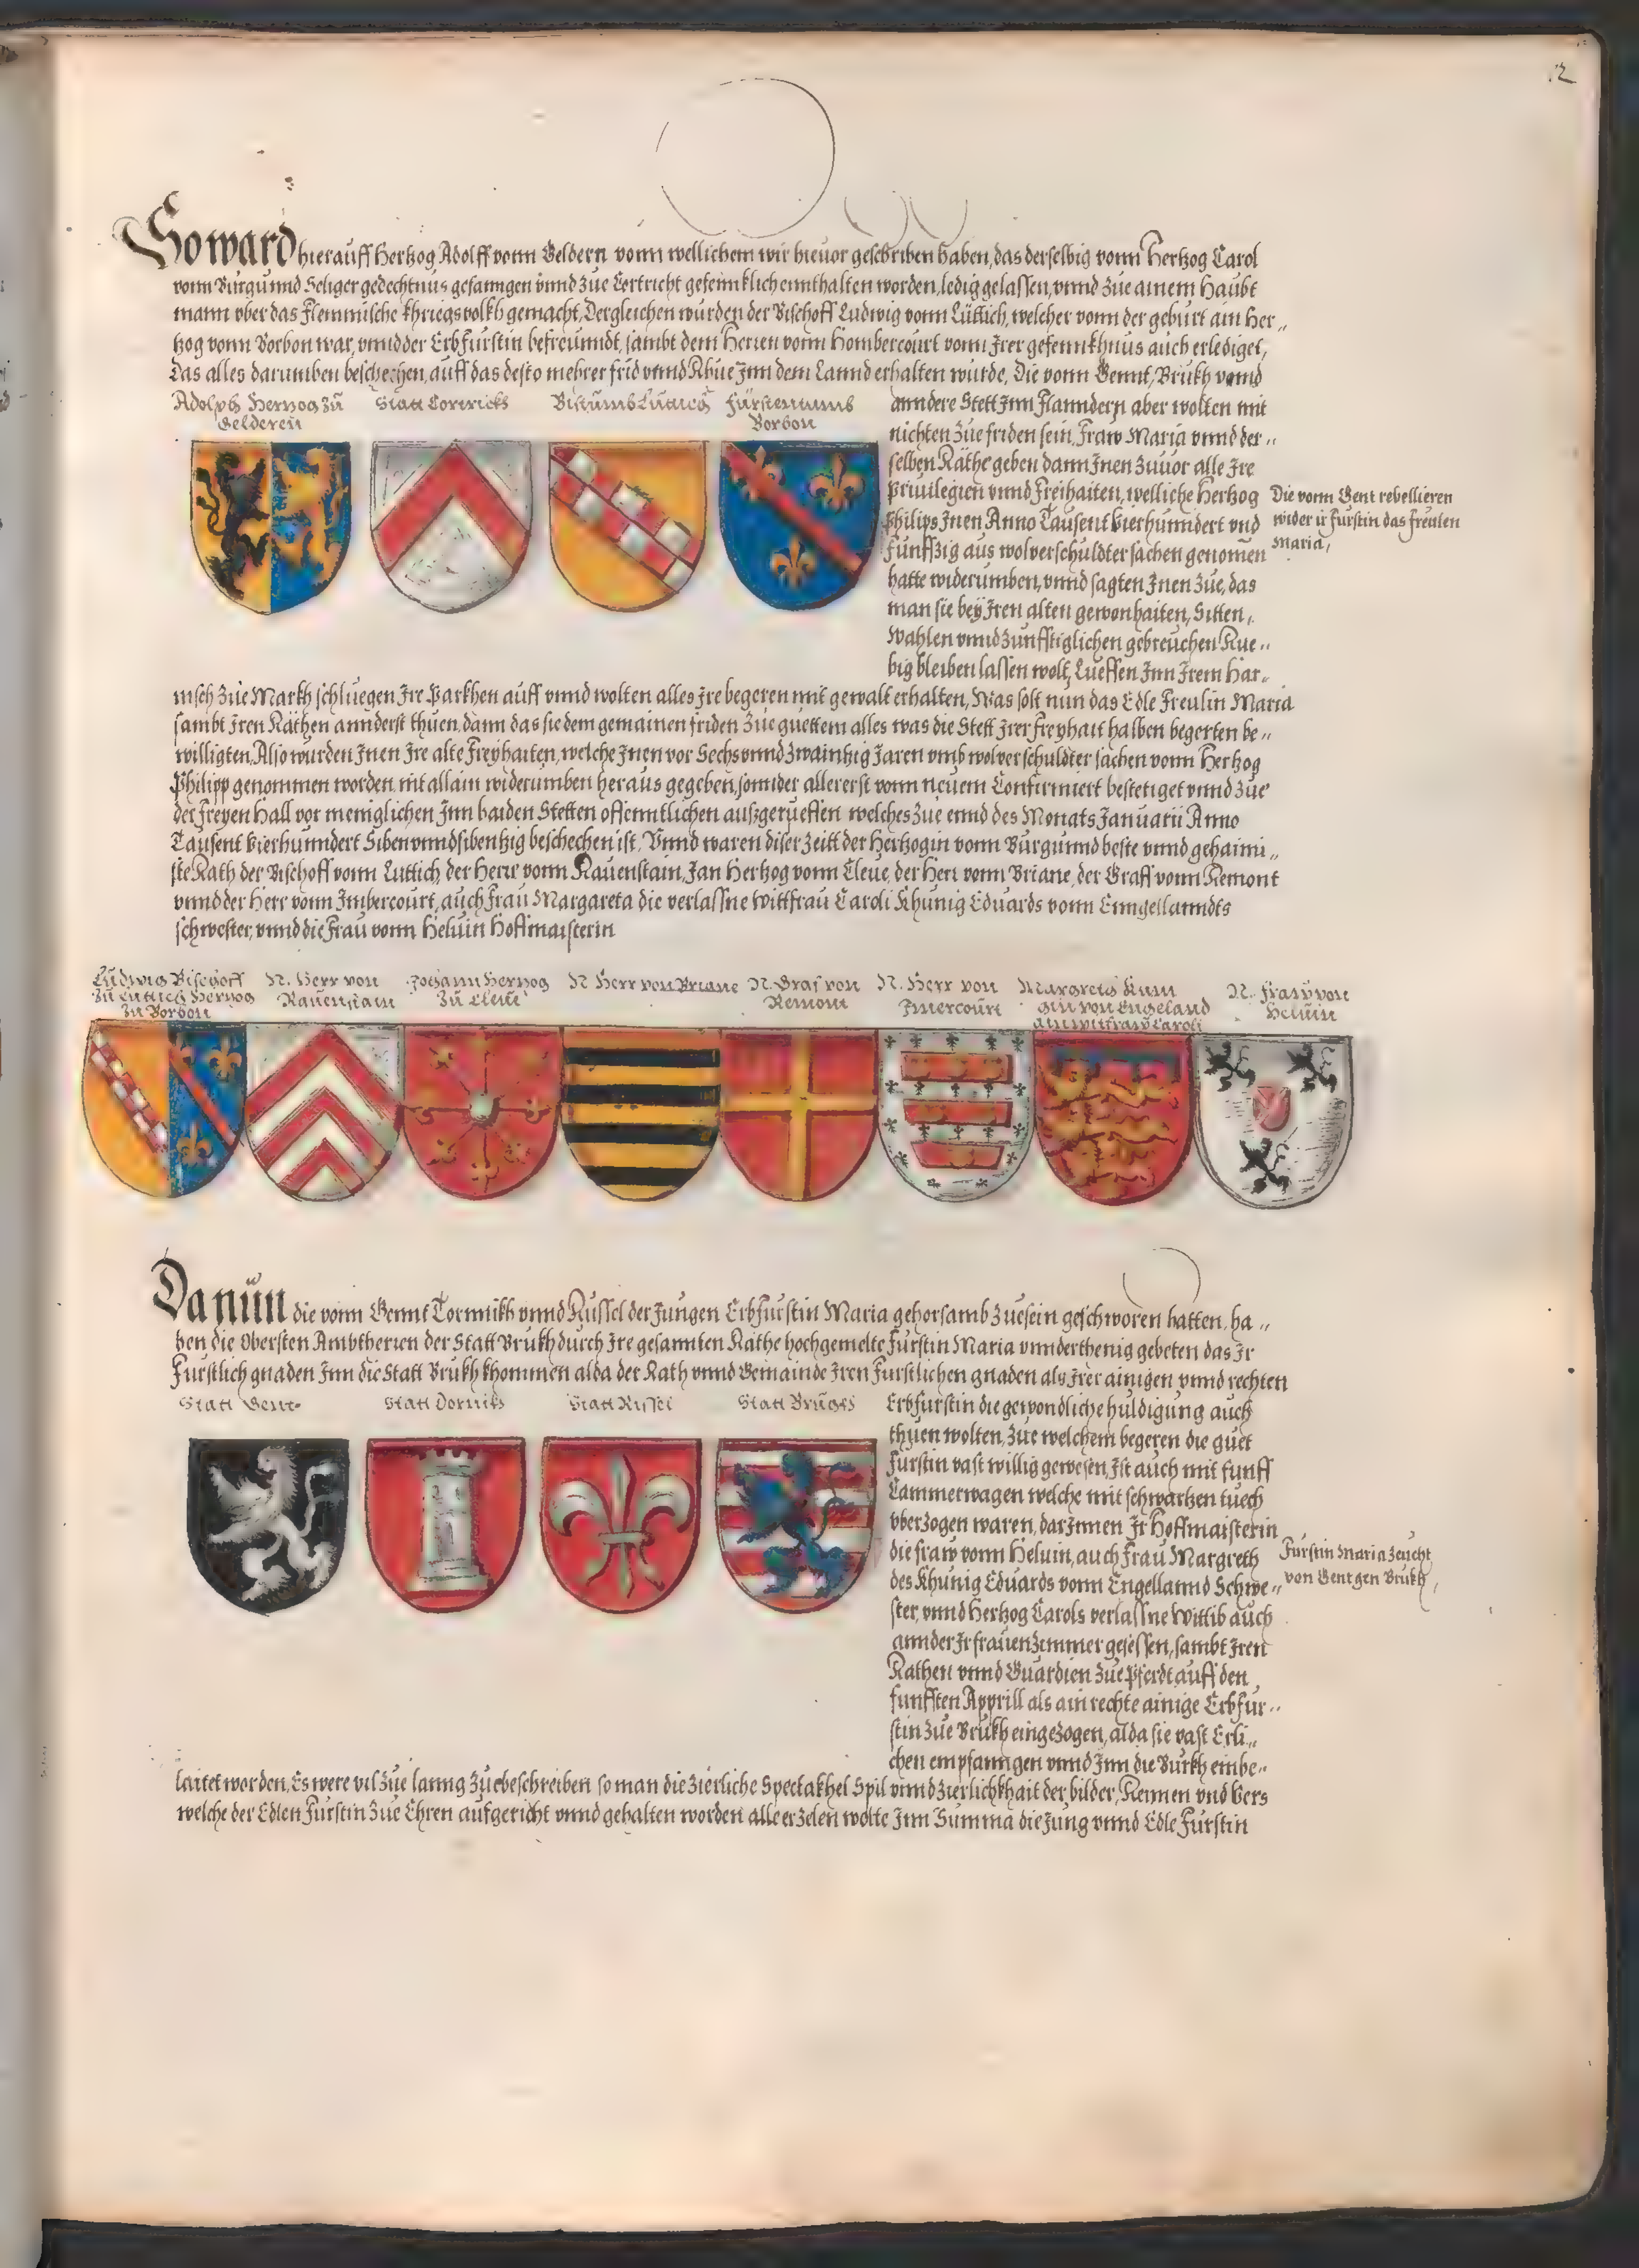 12
So ward hierauff Hertzog Adolff vonn Geldern vonn wellichem wir hieuor geschriben haben, das derselbig vonn Hertzog Carol
vonn Burgunnd Seliger gedechtnus gefanngen vnnd zue Cortricht gefennklich ennthalten worden, ledig gelassen, vnnd zue ainem Haubt
mann vber das Flemmische khriegsvolkh gemacht, Dergleichen wurden der Bischoff Ludwig vonn Lüttich, welcher vonn der geburt ain Her„
tzog vonn Borbon war, vnnd der Erbfürstin befreunndt, sambt dem Herren vonn Hombercourt vonn Irer gefennkhnus auch erlediget,
Das alles darumben beschechen, auff das desto mehrer frid vnnd Rhue Inn dem Lannd erhalten wurde, Die vonn Gennt, Brukh vnnd
Adolph Hertzog zu Gelderen
Statt Cortricks
Bistumb Luttich
Fürstentumb Borbon
anndere Stett Inn Flanndern aber wolten mit
nichten zue friden sein, Fraw Maria vnnd der„
selben Räthe geben dann Inen zuuor alle Ire
Priuilegien vnnd Freihaiten, welliche Hertzog
Philips Inen Anno Tausent Vierhunndert vnd
Funffzig aus wolverschuldter sachen genomen
hatte widerumben, vnnd sagten Inen zue, das
man sie bey Iren alten gewonhaiten, Sitten,
Wahlen vnnd zunfftiglichen gebreuchen Rue„
big bleiben lassen wolt, Lueffen Inn Irem Har„
Die vonn Gent rebellieren
wider ir Fürstin das Freulen
Maria,
nisch zue Markh schluegen Ire Parkhen auff vnnd wolten alles Ire begeren mit gewalt erhalten, Was solt nun das Edle Freulin Maria
sambt Iren Räthen annderst thuen, dann das sie dem gemainen friden zue guettem alles was die Stett Irer Freyhait halben begerten be„
willigten, Also wurden Inen Ire alte Freyhaiten, welche Inen vor Sechs vnnd zwaintzig Jaren vmb wolverschuldter sachen vonn Hertzog
Philipp genommen worden, nit allain widerumben heraus gegeben, sonnder allererst vonn neuem Confirmiert bestetiget vnnd zue
der Freyen Hall vor meniglichen Inn baiden Stetten offenntlichen außgerueffen welches zue ennd des Monats Januarii Anno
Tausent Vierhunndert Siben vnnd sibentzig beschechen ist, Vnnd waren diser Zeitt der Hertzogin vonn Burgunnd beste vnnd gehaimi„
ste Rath der Bischoff vonn Luttich, der Herr vonn Rauenstain, Jan Hertzog vonn Cleue, der Herr vonn Briane, der Graff vonn Remont
vnnd der Herr vonn Imbercourt, auch Frau Margareta die verlassne Wittfrau Caroli Khunig Eduards vonn Enngellanndts
schwester, vnnd die Frau vonn Heluin Hoffmaisterin
Ludwig Bischoff zu Luttich Hertzog zu Borbon
N. Herr von Rauenstain
Johann Hertzog zu Cleue
N Herr von Briane
N. Graf von Remont
N. Herr von Imercourt
Margreth Kunigin von Engeland ain witfraw Caroli
N. Fraw von Heluin
Da nun die vonn Gennt Tornikh vnnd Russel der Jungen Erbfürstin Maria gehorsamb zue sein geschworen hatten, ha„
ben die Obersten Ambtherren der Statt Brukh durch Ire gesannten Räthe hochgemelte Fürstin Maria vnnderthenig gebeten das Ir
Furstlich gnaden Inn die Statt Brukh khommen alda der Rath vnnd Gemainde Iren Furstlichen gnaden als Irer ainigen vnnd rechten
Statt Gent
Statt Dornik
Statt Rissel
Statt Brugis
Erbfürstin die gewondliche huldigung auch
thuen wolten, zue welchem begeren die guet
Fürstin vast willig gewesen, Ist auch mit funff
Cammerwagen welche mit schwartzen tuech
vberzogen waren, dar Innen Ir Hoffmaisterin
die fraw vonn Heluin, auch Frau Margreth
des Khunig Eduards vonn Engellannd Schwe„
ster, vnnd Hertzog Carols verlassne Wittib auch
annder Ir frauenzimmer gesessen, sambt Iren
Rathen vnnd Guardien zue Pferdt auff den
funfften Apprill als ain rechte ainige Erbfür„
stin zue Brukh eingezogen, alda sie vast Erli„
chen empfanngen vnnd Inn die Burkh einbe„
Fürstin Maria zeucht
von Gent gen Brukh,
laitet worden, Es were vil zue lanng zue beschreiben so man die zierliche Spectakhel Spil vnnd zierlichkhait der bilder, Reimen vnd Vers
welche der Edlen Fürstin zue Ehren aufgericht vnnd gehalten worden alle erzelen wolte Inn Summa die Jung vnnd Edle Fürstin